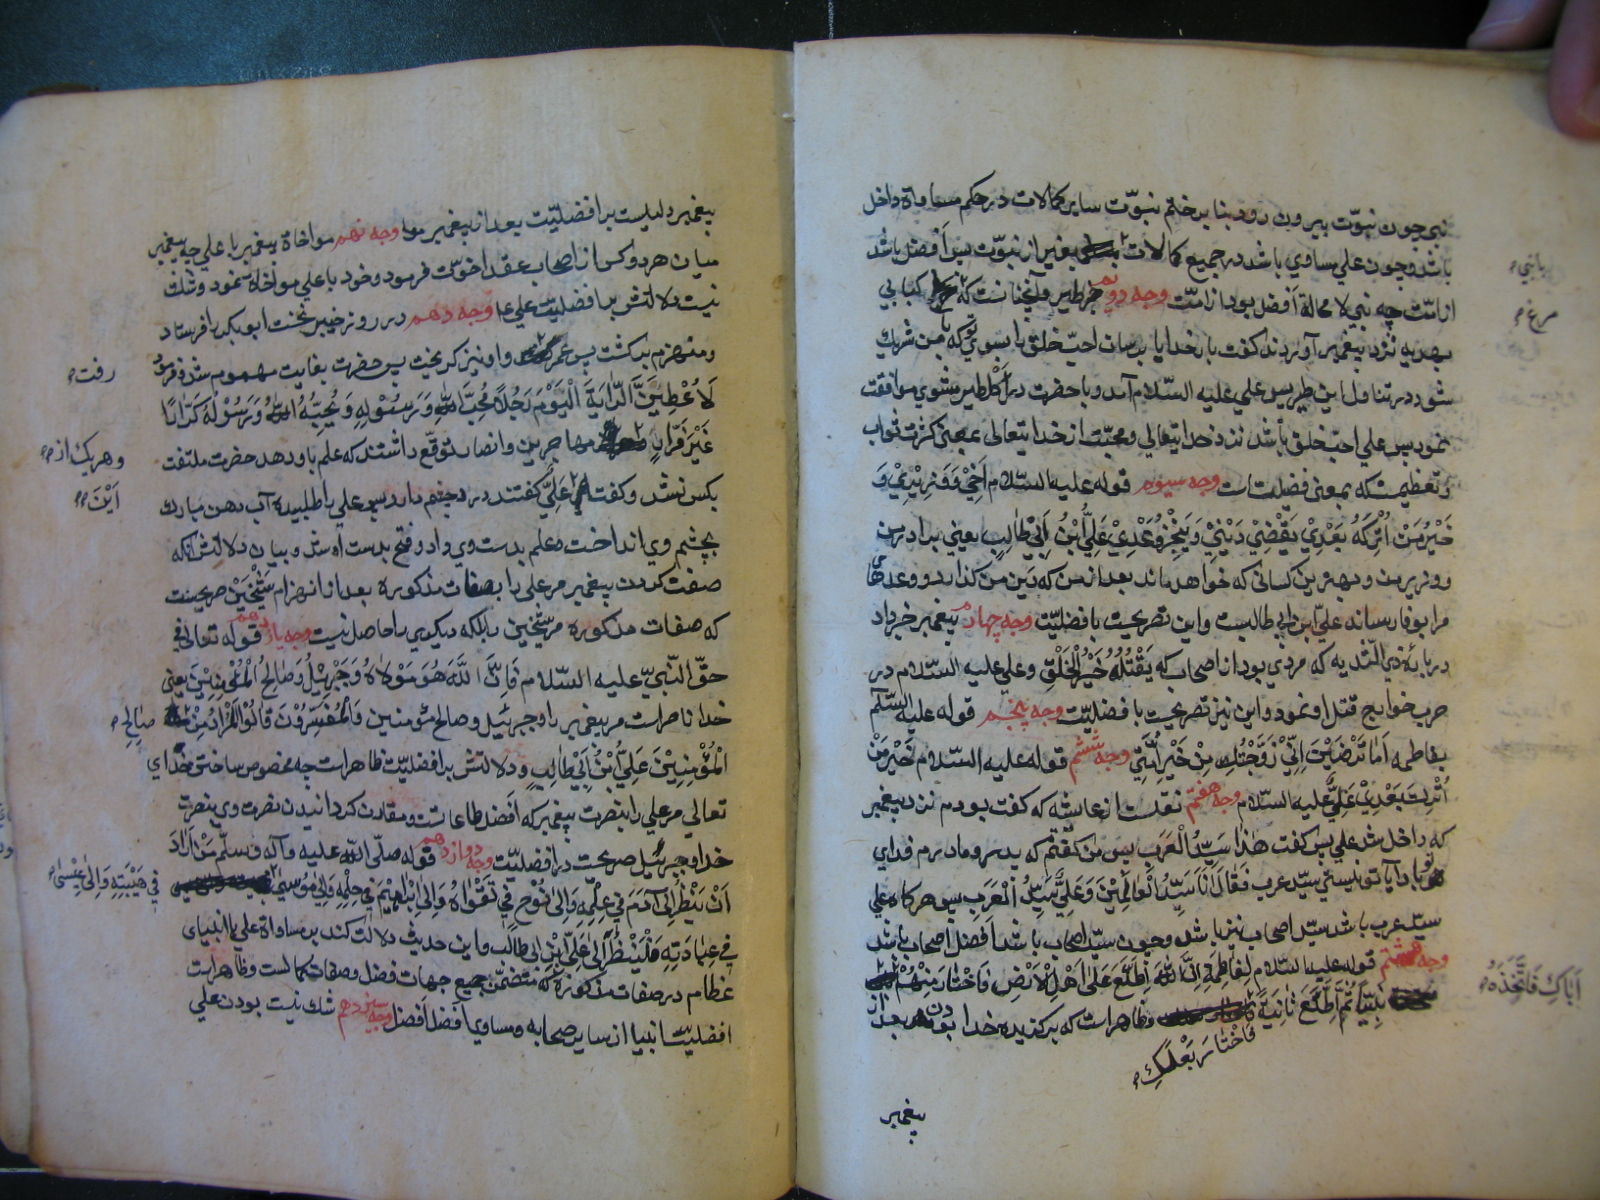 نبی چون نبوّت بیرون رود بنا بر ختم نبوّت سایر کمالات در حکم مساواة داخل
باشد و چون علی مساوی باشد در جمیع کمالات بپیغمبر از نبوّت پس افضل باشد
از امّت چه نبی لا محالة افضل بود از امّت وجه دویم خبر طیر و آنچنانست که کبابی
بهدیه نزد پیغمبر آوردند گفت بار خدایا برسان احبّ خلق را بسوی تو که با من شریک
شود در تناول این طیر پس علی علیه السّلام آمد و با حضرت در اکل طیر مشوی موافقت
نمود پس علی احبّ خلق باشد نزد خدایتعالی و محبّت از خدایتعالی بمعنی کثرت ثواب
و تعظیمست که بمعنی فضیلت است وجه سیوم قوله علیه السّلام اَخِیْ وَ وَزِیْرِیْ وَ
خَیْرُ مَنْ اَتْرُکُهُ بَعْدِیْ یَقْضِیْ دَیْنِیْ وَیُنْجِزُ وَعْدِیْ عَلِیُّ ابْنُ اَبِیْ طٰالِبٍ یعنی برادر من
و وزیر من و بهترین کسانی که خواهد ماند بعد از من که دین من گذارد و وعدهای
مرا بوفا رساند علیّ ابن ابی طالبست و این تصریحست بافضلیّت وجه چهارم پیغمبر خبر داد
در بابة ذی الثدیه که مردی بود از اصحاب که یَقْتُلُهُ خَیْرُ الْخَلْقِ و علی علیه السّلام در
حرب خوارج قتل او نمود و این نیز تصریحست بافضلیّت وجه پنجم قوله علیه السّلم
بفاطمه اَمٰا تَرْضَیْنَ اِنِّیْ زَوَّجْتُكِ مِنْ خَیْرِ اُمَّتِی وجه ششم قوله علیه السّلام خَیْرُ مَنْ
اُتْرِكَ بَعْدِیْ عَلِیٌّ علیه السّلام وجه هفتم نقلست از عایشه که گفت بودم نزد پیغمبر
که داخل شد علی پس گفت هٰذٰا سَیِّدُ الْعَرَبِ پس من گفتم که پدر و مادرم فدای
تو باد آیا تو نیستی سیّد عرب فَقٰالَ اَنَا سَیِّدُ الْعٰالَمِیْنَ وَ عَلِیٌّ سَیِّدُ الْعَرَبِ پس هرکاه علی
سیّد عرب باشد سیّد اصحاب نیز باشد و چون سیّد اصحاب باشد افضل اصحاب باشد
وجه هشتم قوله علیه السّلام لِفٰاطِمَةَ اِنَّ اللّٰهَ اِطَّلَعَ عَلیٰ اَهْلِ الْاَرْضِ فَاخْتٰارَ مِنْهُمْ
نَبِیًّا ثُمَّ اطَّلَعَ ثٰانِیَةً و ظاهر است که برگزیده خدا بودن بعد از
فَاخْتٰارَ بَعْلَكِ
پیغمبر
مرغ
اَبٰاكِ فَاتَّخَذَهُ
پیغمبر دلیلست بر افضلیّت بعد از پیغمبر مر او را وجه نهم مواخاة پیغمبر با علی چه پیغمبر
میان هر دو کس از اصحاب عقد اخوّت فرمود و خود با علی مواخاة نمود و شك
نیست دلالتش بر افضلیّت علی وجه دهم در روز خیبر نخست ابو بکر را فرستاد
و منهزم برکشت پس عمر و او نیز کریخت پس حضرت بغایت مهموم شد و فرمود
لَاُعْطِیَنَّ الرّٰایَةَ الْیَوْمَ رَجُلًا مُحِبَّ اللّٰهِ وَ رَسُوْلِهِ وَ یُحِبُّهُ اللّٰهُ وَ رَسُوْلُهُ کَرّٰارًا
غَیْرَ فَرّٰارٍ مهاجرین و انصار توقّع داشتند که علم باو دهد حضرت ملتفت
بکس نشد و گفت عَلِیٌّ گفتند درد چشم دارد پس علی را طلبیده آب دهن مبارك
بچشم وی انداخت و علم بدست وی داد و فتح بدست او شد و بیان دلالتش آنکه
صفت کردن پیغمبر مر علی را بصفات مذکوره بعد از انهزام شَیْخَیْن صریحست
که صفات مذکوره مر شیخین را بلکه دیکری را حاصل نیست وجه یازدهم قوله تعالی فی
حقّ النّبیّ علیه السّلام فَاِنَّ اللّٰهَ هُوَ مَوْلٰاهُ وَ جَبْرِئِیْلُ وَ صٰالِحُ الْمُؤْمِنِیْنَ یعنی
خدا ناصر است مر پیغمبر را و جبرئیل و صالح مؤمنین وَ الْمُفَسِّرُوْنَ قٰالُوْا الْمُرٰادُ مِنْ
الْمُؤْمِنِیْنَ عَلِیُّ ابْنُ اَبِیْ طٰالِبٍ و دلالتش بر افضلیّت ظاهر است چه مخصوص ساختن خدای
تعالی مر علی را بنصرت پیغمبر که افضل طاعاتست و مقارن کردانیدن نصرت وی بنصرت
خدا و جبرئیل صریحست در افضلیّت وجه دوازدهم قوله صلّی اللّٰه علیه و آله و سلّم مَنْ اَرٰادَ
اَنْ یَنْظُرَ اِلیٰ آدَمَ فِیْ عِلْمِهِ وَ اِلیٰ نُوْحٍ فِیْ تَقْوٰاهُ وَ اِلیٰ اِبْرٰاهِیْمَ فِیْ حِلْمِهِ وَ اِلیٰ مُوْسیٰ
فِیْ عِبٰادَتِهِ فَلْیَنْظُرْ اِلیٰ عَلِیِّ ابْنِ اَبِی طٰالِبٍ و این حدیث دلالت کند بر مساواة علی با انبیای
عظام در صفات مذکوره که متضمّن جمیع جهات فضل و صفات کمالست و ظاهر است
افضلیّت انبیا از سایر صحابه و مساوی افضل افضل وجه سیزدهم شك نیست بودن علی
رفت
و هریك از
اَیْنَ
صٰالِحِ
فِیْ هَیْبَتِهِ وَ اِلیٰ عِیْسیٰ